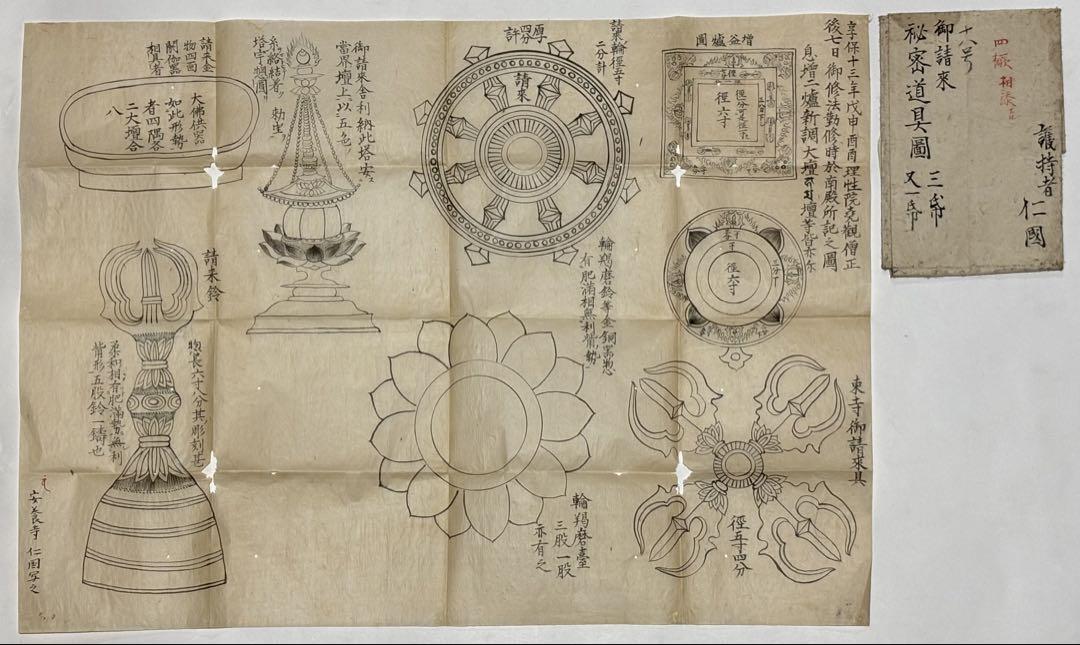 十八号
四櫃
御請來
秘密道具圖 三帋
又一帋
護持者 仁國
享保十三年戊申
後七日御修法勤修時於南殿所記之圖
理性院堯觀僧正
息增二爐新調大壇
壇等皆亦尓
增益爐圖
徑六寸
徑六寸
東寺御請來具
徑五寸四分
請來輪徑五寸
二分計
厚四分許
請來
輪羯磨鈴等金銅器惣
有肥滿相無利
勢
輪羯磨臺
三股一股
亦有之
御請來舍利納此塔安
當界壇上以五色
糸
結着
塔
請來金
物四面
閼伽器
相具者
大佛供器
如此形勢
者四隅各
二大壇合
八
請来鈴
惣長六寸八分其彫刻甚
柔和相有肥滿勢無利
情形五股鈴一鑄也
安養寺 仁国写之